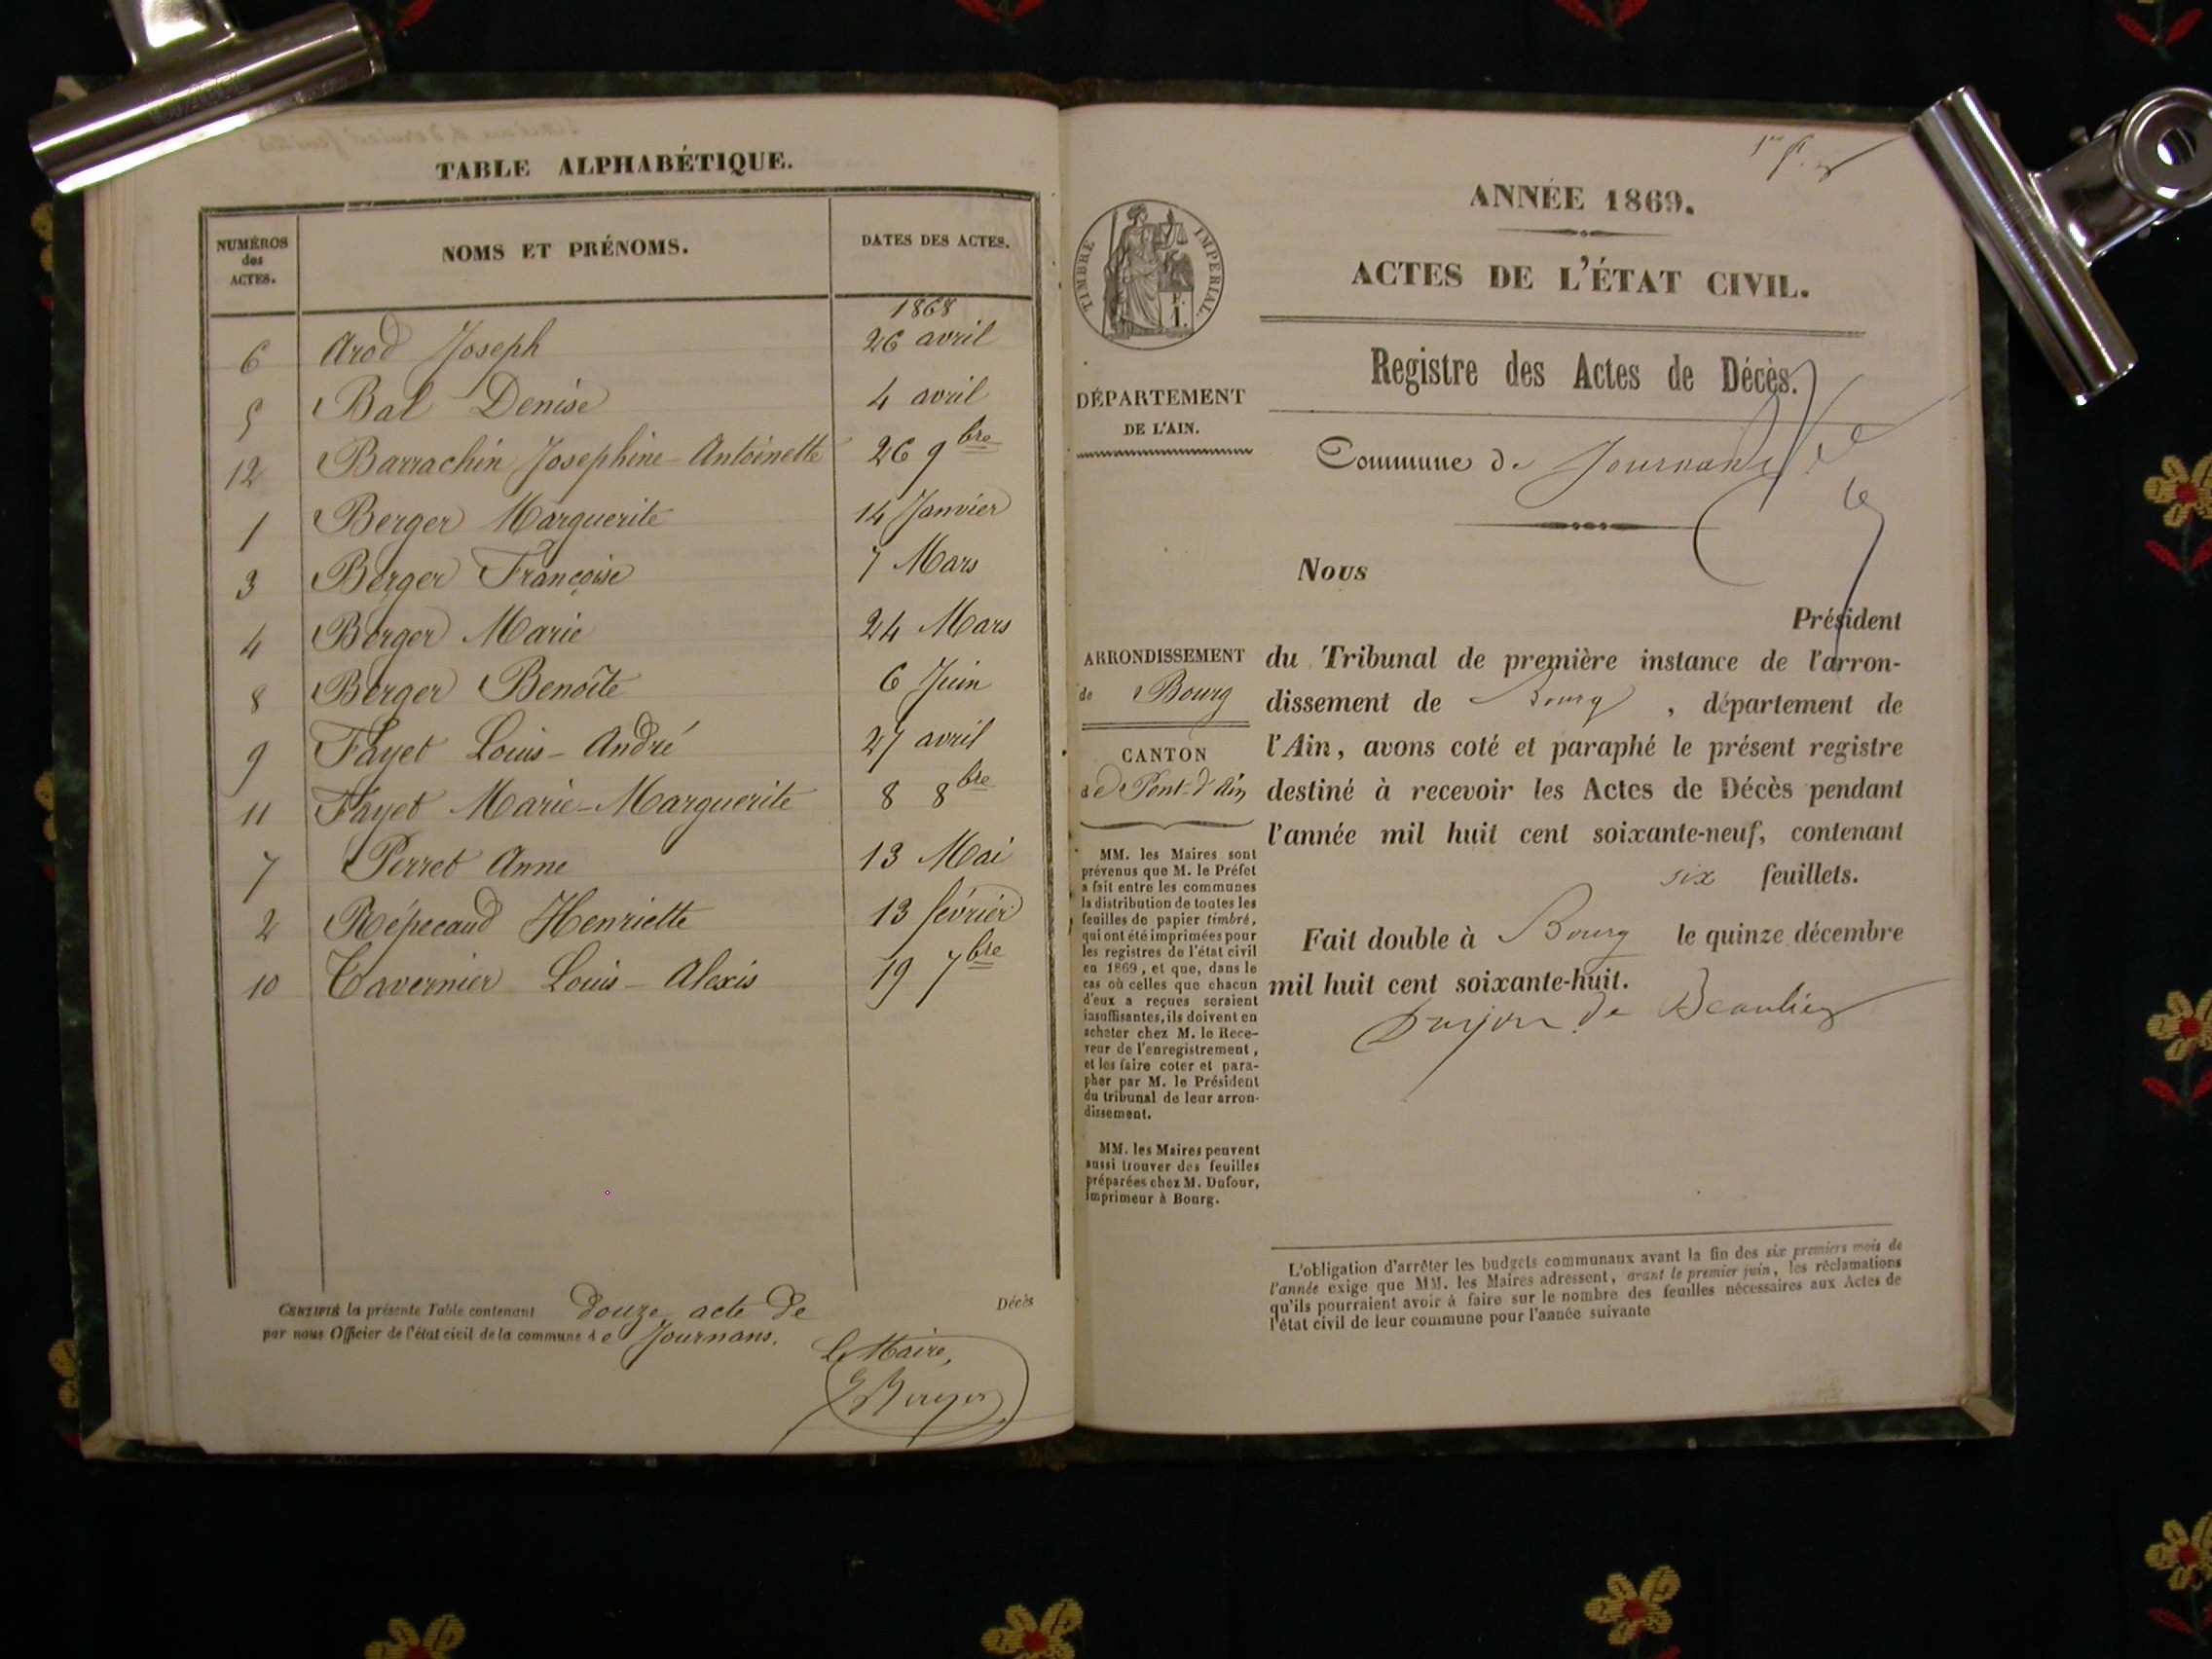 TABLE ALPHABÉTIQUE.
NUMÉROS des ACTES.
NOMS ET PRÉNOMS.
DATES DES ACTES.
1868
6 Arod Joseph 26 avril
5 Bal Denise 4 avril
12 Barrachin Josephine-Antoinette 26 9bre
1 Berger Marguerite 14 Janvier
3 Berger Françoise 7 Mars
4 Berger Marie 24 Mars
8 Berger Benoîte 6 Juin
9 Fayet Louis-André 27 avril
11 Fayet Marie-Marguerite 8 8bre
7 Perret Anne 13 Mai
2 Répecaud Henriette 13 février
10 Tavernier Louis-Alexis 19 7bre
CERTIFIÉ la présente Table contenant douze acte de Décès
par nous Officier de l'état civil de la commune de Journans.
Le Maire,
Berger
ANNÉE 1869.
ACTES DE L'ÉTAT CIVIL.
TIMBRE IMPERIAL.
Registre des Actes de Décès.
DÉPARTEMENT
DE L'AIN.
Commune de Journans
Nous
Président
du Tribunal de première instance de l'arron-
dissement de Bourg, département de
l'Ain, avons coté et paraphé le présent registre
destiné à recevoir les Actes de Décès pendant
l'année mil huit cent soixante-neuf, contenant
six feuillets.
Fait double à Bourg le quinze décembre
mil huit cent soixante-huit.
de Beaulieu
ARRONDISSEMENT
de Bourg
CANTON
de Pont-d'Ain
MM. les Maires sont
prévenus que M. le Préfet
a fait entre les communes
la distribution de toutes les
feuilles de papier timbré,
qui ont été imprimées pour
les registres de l'état civil
en 1869, et que, dans le
cas où celles que chacun
d'eux a reçues seraient
insuffisantes, ils doivent en
acheter chez M. le Rece-
veur de l'enregistrement,
et les faire coter et para-
pher par M. le Président
du tribunal de leur arron-
dissement.
MM. les Maires peuvent
aussi trouver des feuilles
préparées chez M. Dufour,
imprimeur à Bourg.
L'obligation d'arrêter les budgets communaux avant la fin des six premiers mois de
l'année exige que MM. les Maires adressent, avant le premier juin, les réclamations
qu'ils pourraient avoir à faire sur le nombre des feuilles nécessaires aux Actes de
l'état civil de leur commune pour l'année suivante